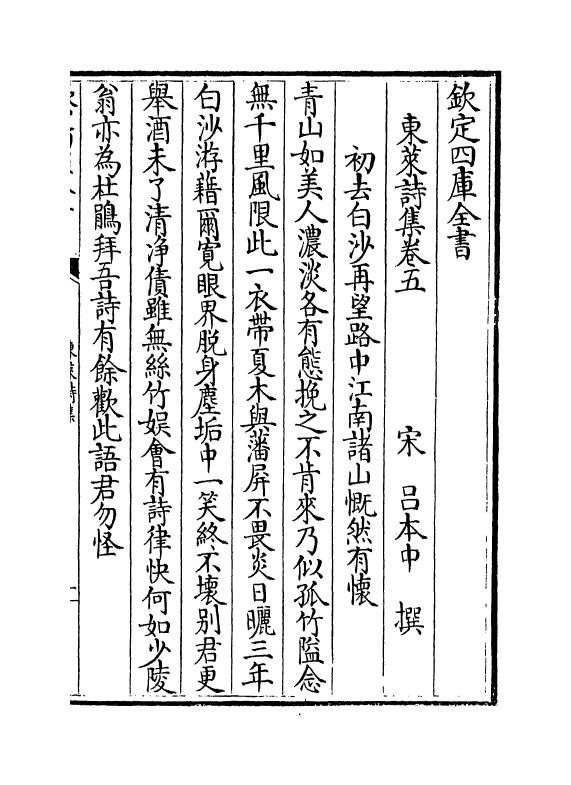 欽定四庫全書
東萊詩集卷五
宋 吕本中 撰
初去白沙再望路中江南諸山慨然有懷
青山如美人濃淡各有態挽之不肯來乃似孤竹隘念
無千里風限此一衣帶夏木與藩屏不畏炎日曬三年
白沙游藉爾寛眼界脱身塵垢中一笑終不壞别君更
舉酒未了清净債雖無絲竹娱會有詩律快何如少陵
翁亦為杜鵑拜吾詩有餘歡此語君勿怪
東萊詩集
一